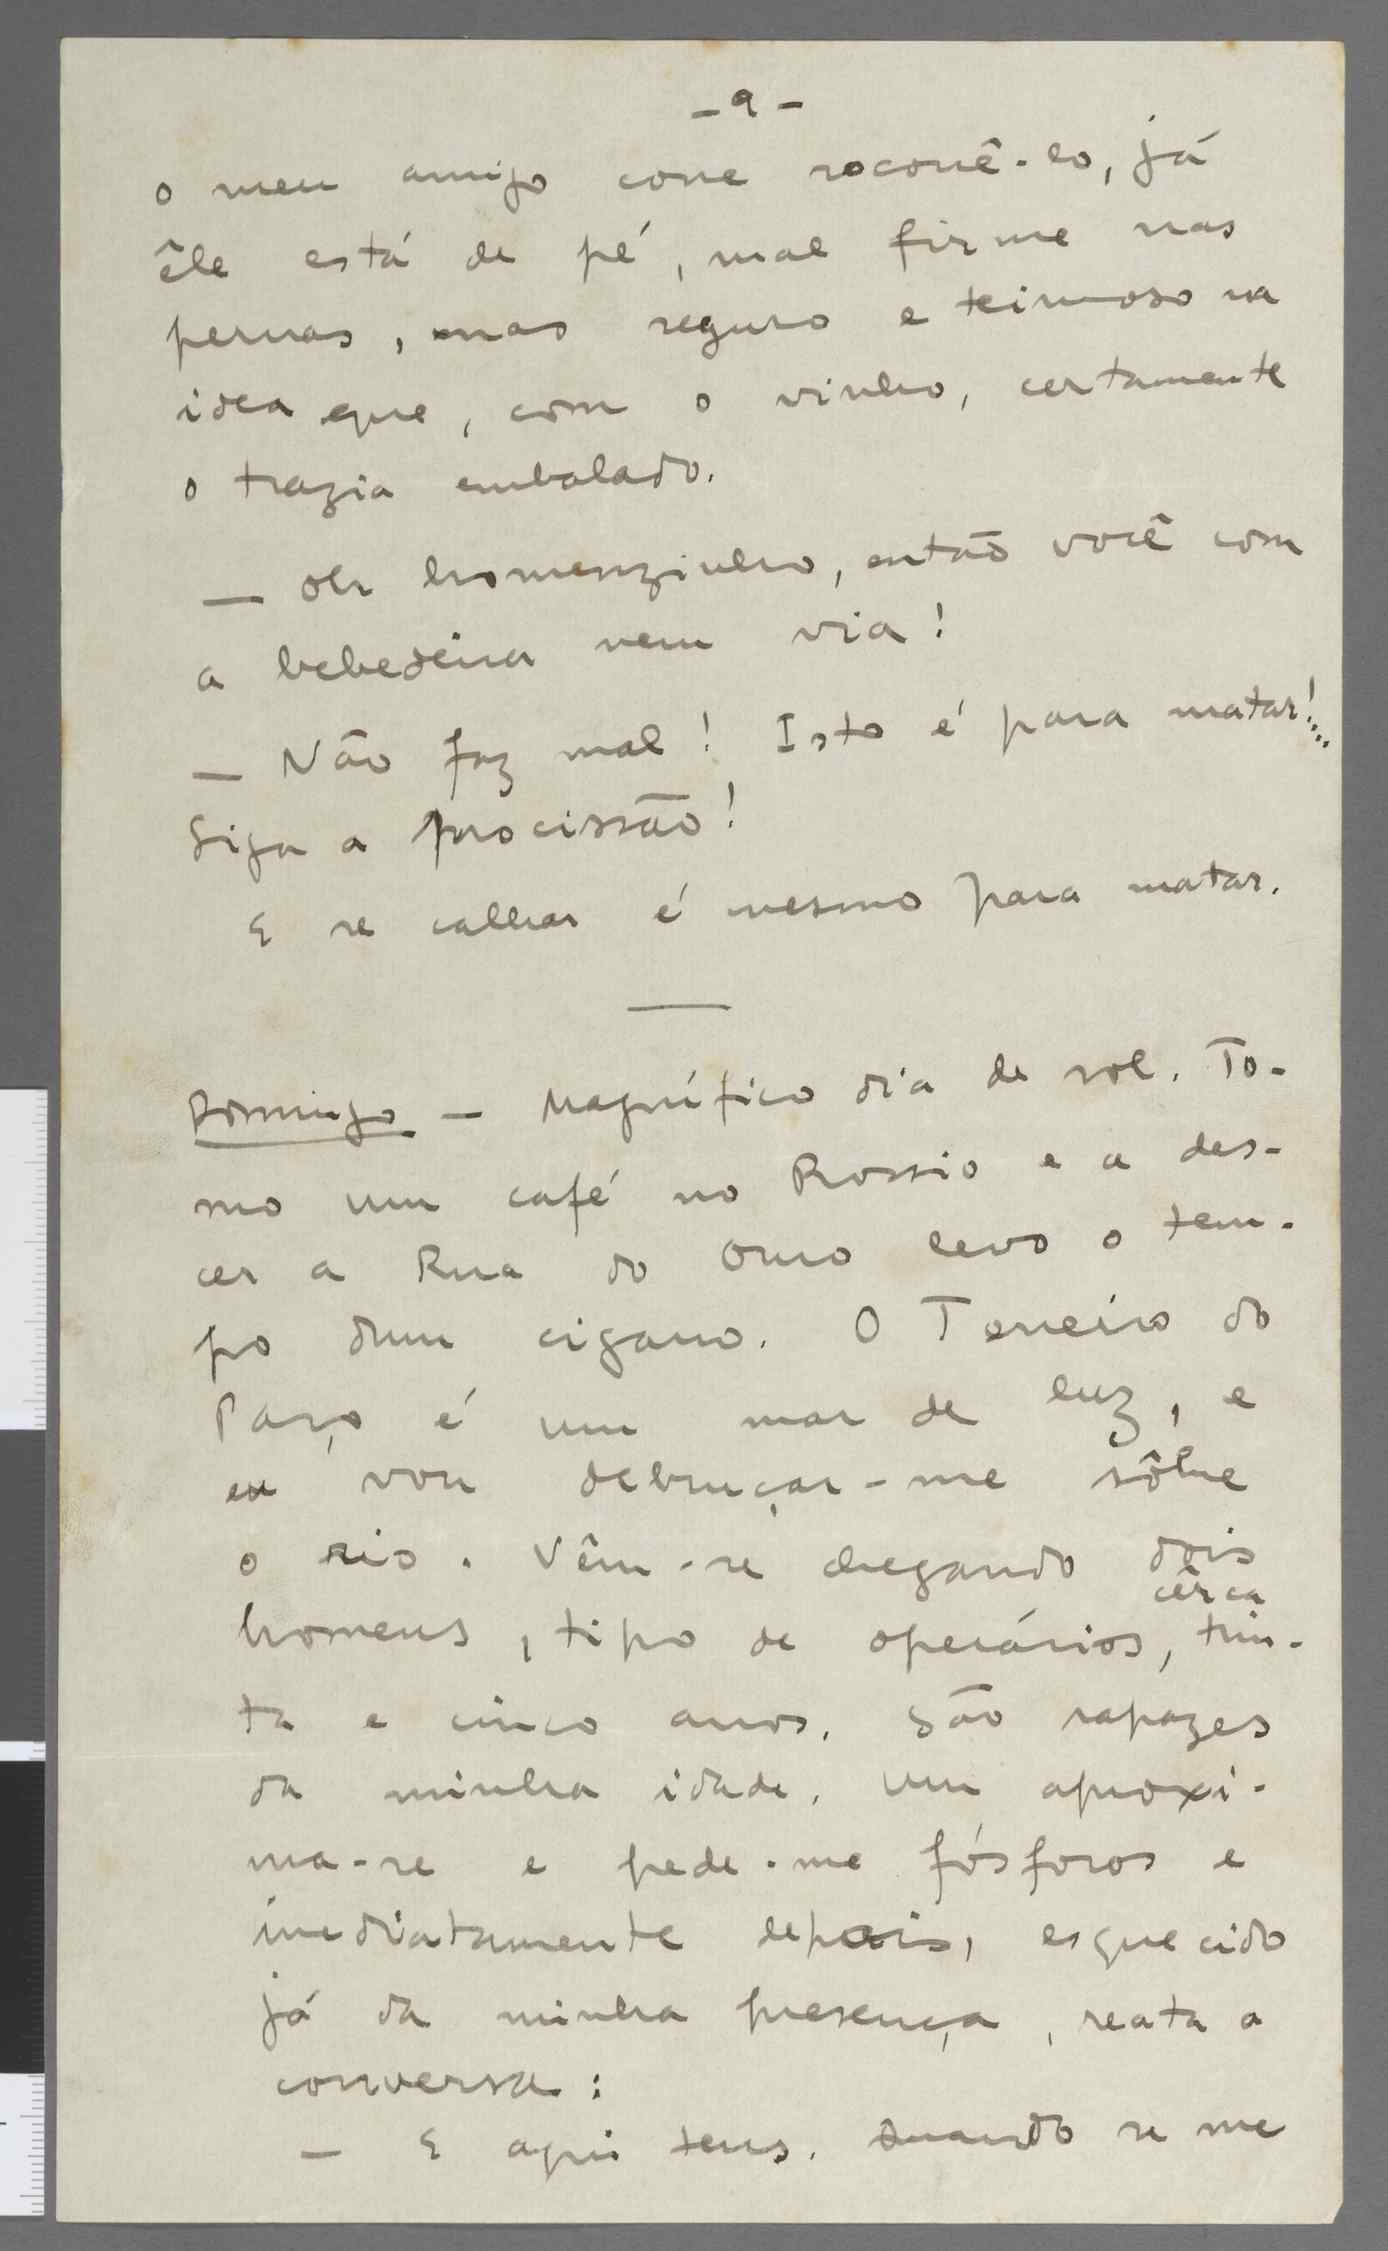 - 9 -
o meu amigo corre socorrê-lo, já
êle está de pé, mal firme nas
pernas, mas seguro e teimoso na
idea que, com o vinho, certamente
o trazia embalado.
— Oh homenzinho, então você com
a bebedeira nem via!
— Não faz mal! Isto é para matar!...
Siga a procissão!
E se calhar é mesmo para matar.
—
Domingo — Magnífico dia de sol. To-
mo um café no Rossio e a des-
cer a Rua do Ouro levo o tem-
po dum cigarro. O Terreiro do
Paço é um mar de luz, e
eu vou debruçar-me sôbre
o rio. Vêm-se chegando dois
homens, tipo de operários, cêrca trin-
ta e cinco anos. São rapazes
da minha idade. Um aproxi-
ma-se e pede-me fósforos e
imediatamente depois, esquecido
já da minha presença, reata a
conversa:
— E aqui tens. Quando se me